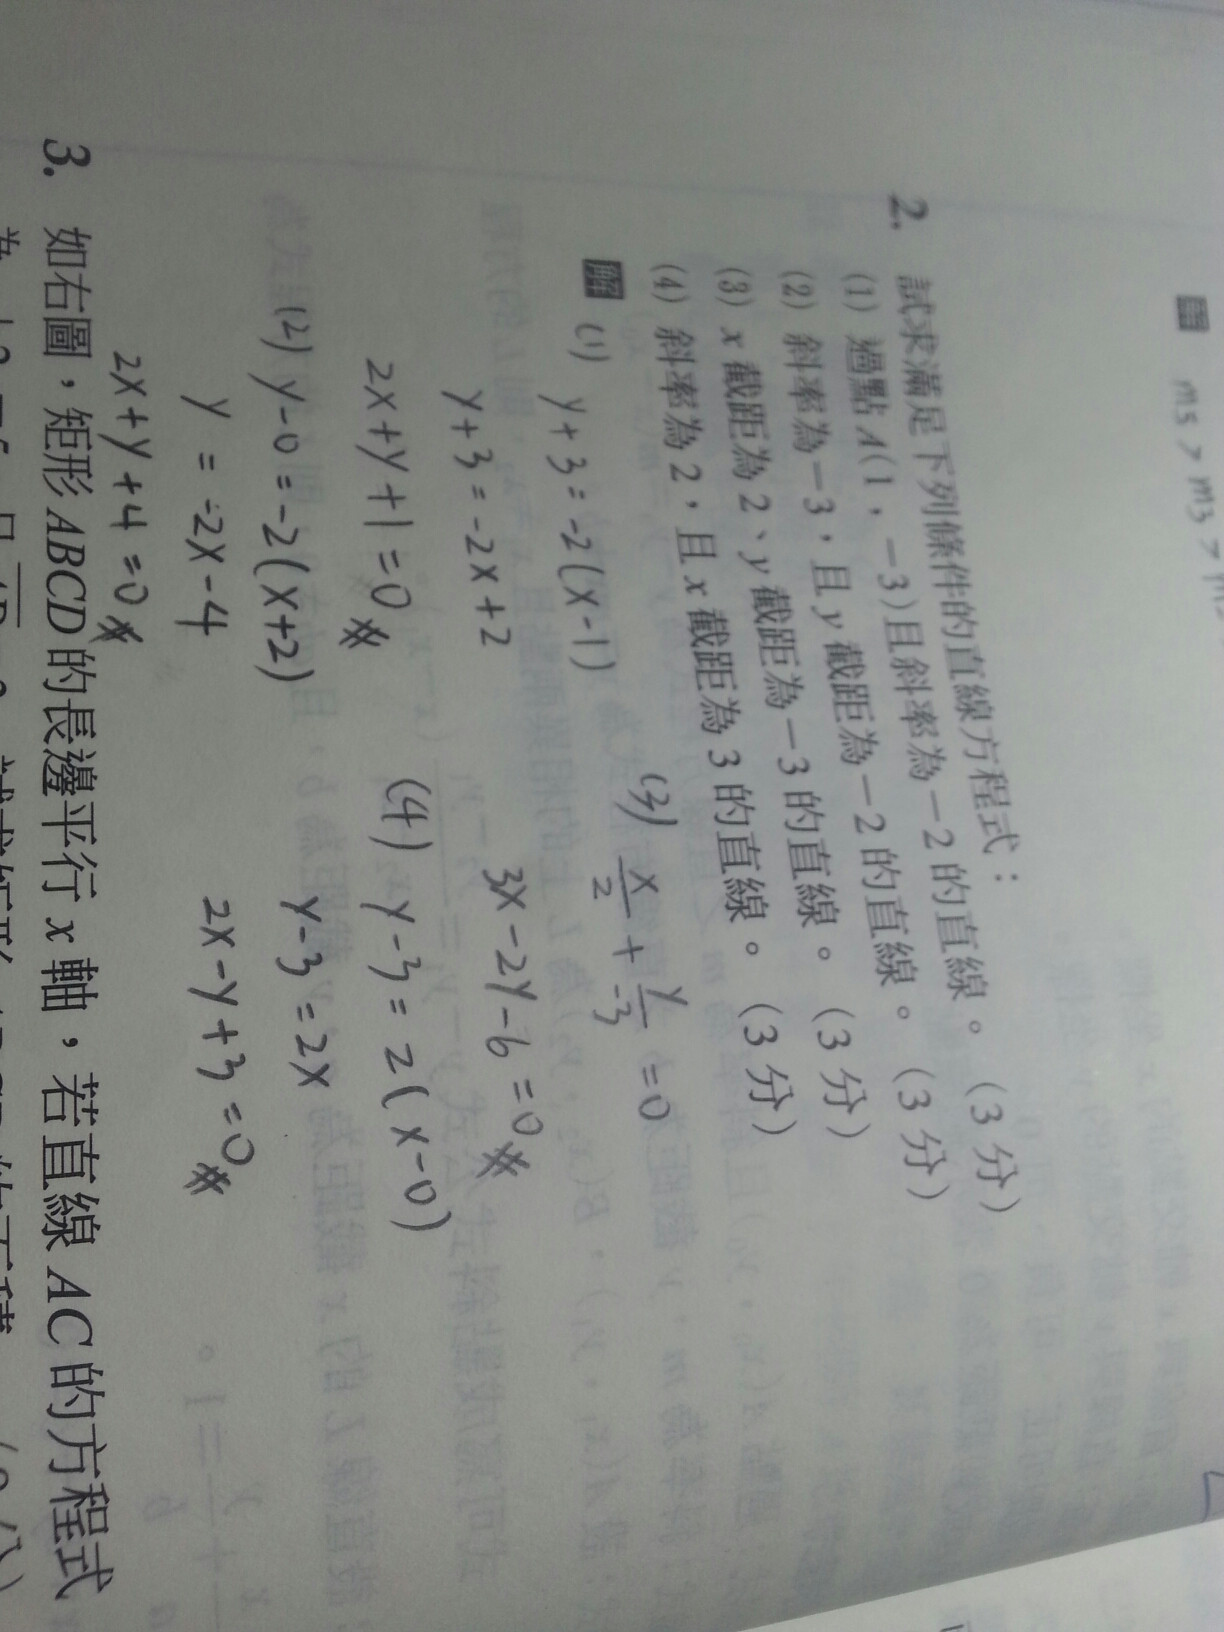 解 m5 > m3 >
2. 試求滿足下列條件的直線方程式：
(1) 過點 A(1，−3)且斜率為−2的直線。 (3分)
(2) 斜率為−3，且 y 截距為−2的直線。 (3分)
(3) x 截距為 2、y 截距為−3的直線。 (3分)
(4) 斜率為 2，且 x 截距為 3 的直線。 (3分)
解 (1) y+3=-2(x-1)
y+3=-2x+2
2x+y+1=0
(2) y-0=-2(x+2)
y=-2x-4
2x+y+4=0
(3) x/2 + y/-3 =0
3x-2y-6=0
(4) y-3=2(x-0)
y-3=2x
2x-y+3=0
3. 如右圖，矩形 ABCD 的長邊平行 x 軸，若直線 AC 的方程式